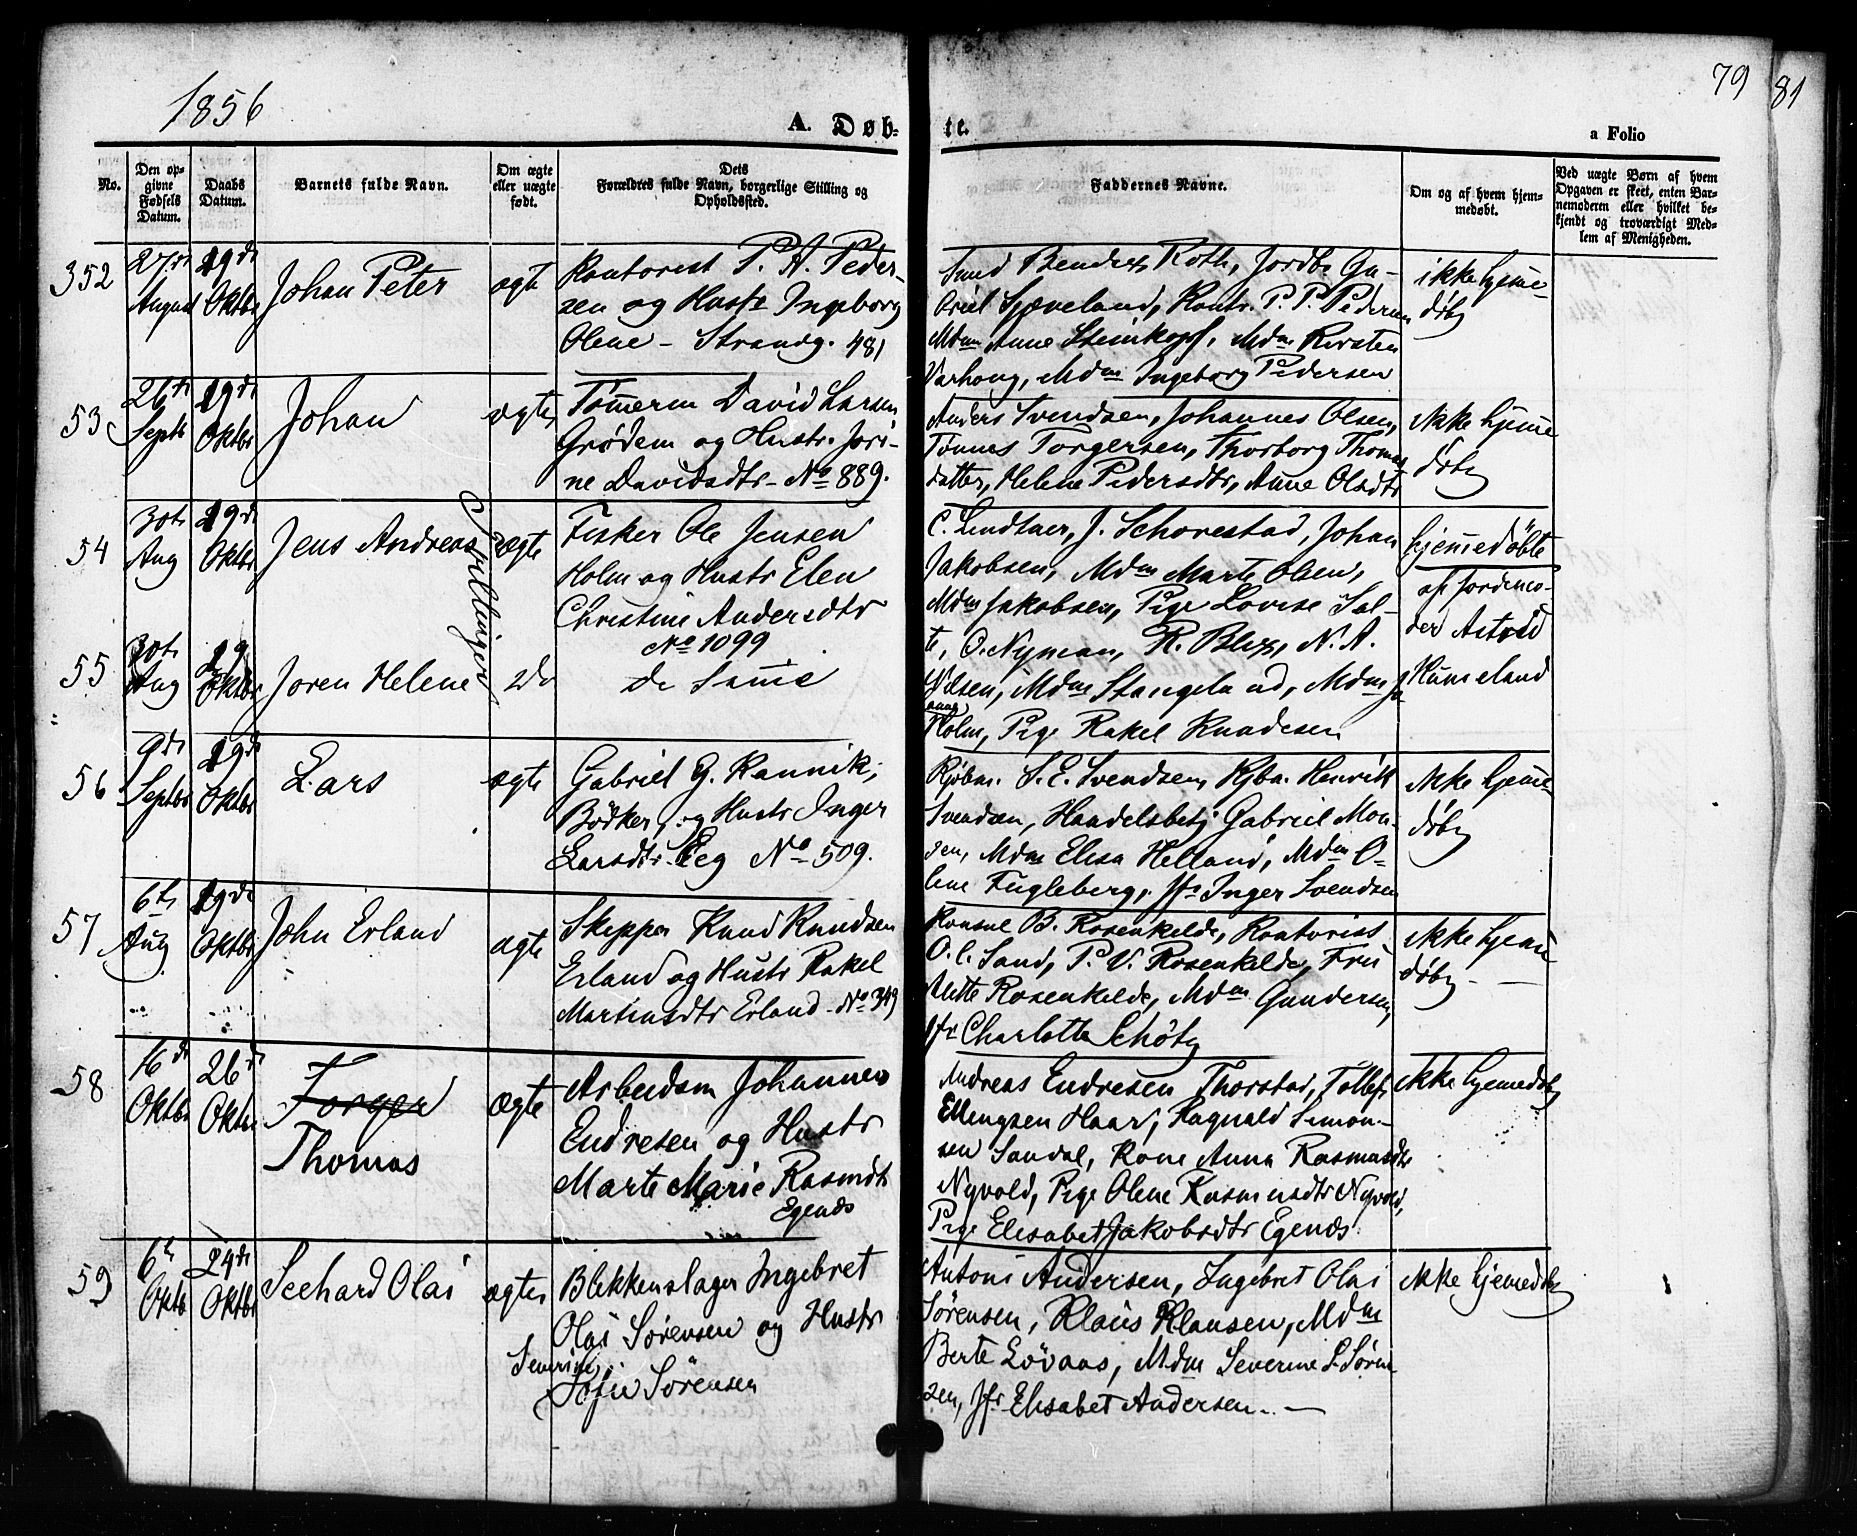 1856
A. Døb-
te.
79
81
a Folio
No.
Den op-
givne
Fødsels
Datum.
Daabs
Datum.
Barnets fulde Navn.
Om ægte
eller uægte
født.
Dets
Forældres fulde Navn, borgerlige Stilling og
Opholdssted.
Faddernes Navne.
Om og af hvem hjem-
medøbt.
Ved uægte Børn af hvem
Opgaven er skeet, enten Bar-
nemoderen eller hvilket be-
kjendt og troværdigt Med-
lem af Menigheden.
352
27de
August
19de
Oktbr
Johan Peter
ægte
Kontorist P. A. Peder-
sen og Hustr Ingeborg
Olene - Strandg. 481
Bendix Roth, Jordbr Ga-
briel Sjæveland, Kontr. P. P. Pedersen
Mdm Anne Steinkopf, Mdm Kirsten
Varhoug, Mdm Ingeborg Pedersen
ikke hjemme-
døby
53
26de
Septb
19de
Oktbr
Johan
ægte
Tømmerm David Larsen
Grødem og Hustr. Jori-
ne Davidsdtr - No 889.
Anders Svendsen, Johannes Olsen,
Tønnes Torgersen, Thorborg Thomas
datter, Helene Pedersdtr, Anne Olsdtr
ikke hjemme
døby
54
30te
Aug
19de
Oktbr
Jens Andreas
Tvillinger
ægte
Fisker Ole Jensen
Holm og Hustr Elen
Christine Andersdtr
No 1099
C. Lindtner, J. Schorestad, Johan
Jakobsen, Mdm Marte Olsen,
Mdm Jakobsen, Pige Lovise Sal-
te, O. Nyman, R. Blix, N. A.
hjemmedøbte
af Jordemo-
der Astrid
55
30te
Aug
19
Oktbr
Joren Helene
Do
De Samme
Nilsen, Mdm Stangeland, Mdm
Holm, Pige Rakel Knudesen
Kumeland
56
9de
Septbr
19de
Oktbr
Lars
ægte
Gabriel G. Rannik,
Bödker, og Hustr Inger
Larsdtr Eeg No 509.
Kjöbm. S. E. Svendsen, Kjbm. Henrik
Svendsen, Handelsbetj Gabriel Mon-
sen, Mdm Elisa Helland, Mdm O-
lene Fugleberg, Jfr Inger Svendsen
ikke hjemme-
døby
57
6te
Aug
19de
Oktbr
John Erland
ægte
Skipper Knud Knudsen
Erland og Hustr Rakel
Martinsdtr Erland - No 349
Konsul B. Rosenkilde, Kontorist
O. C. Sand, P. V. Rosenkilde, Fru
Mette Rosenkilde, Mdm Gundersen,
Jfr Charlotte Schøty
ikke hjemme
døby -
58
16de
Oktbr
26de
Oktbr
Torger
Thomas
ægte
Arbeidsm Johannes
Endresen og Hustr
Marte Marie Rasmdtr
Egenæs
Andreas Endresen Thorstad, Tollef
Ellingsen Haar, Ragnald Simon-
sen Sandal, Kone Anna Rasmusdtr
Nyvold, Pige Olene Rasmusdtr Nyvold,
Pige Elisabet Jakobsdtr Egenæs
ikke hjemmedøby
59
6te
Oktb
24de
Oktbr
Seehard Olai
ægte
Blikkenslager Ingebret
Olai Sørensen og Hustr
Severine
Sofie Sørensen
Antoni Andersen, Ingebret Olai
Sørensen, Klaus Klausen, Mdm
Berte Lövaas, Mdm Severine S. Sören
sen, Jfr Elisabet Andersen. -
ikke hjemmedøby